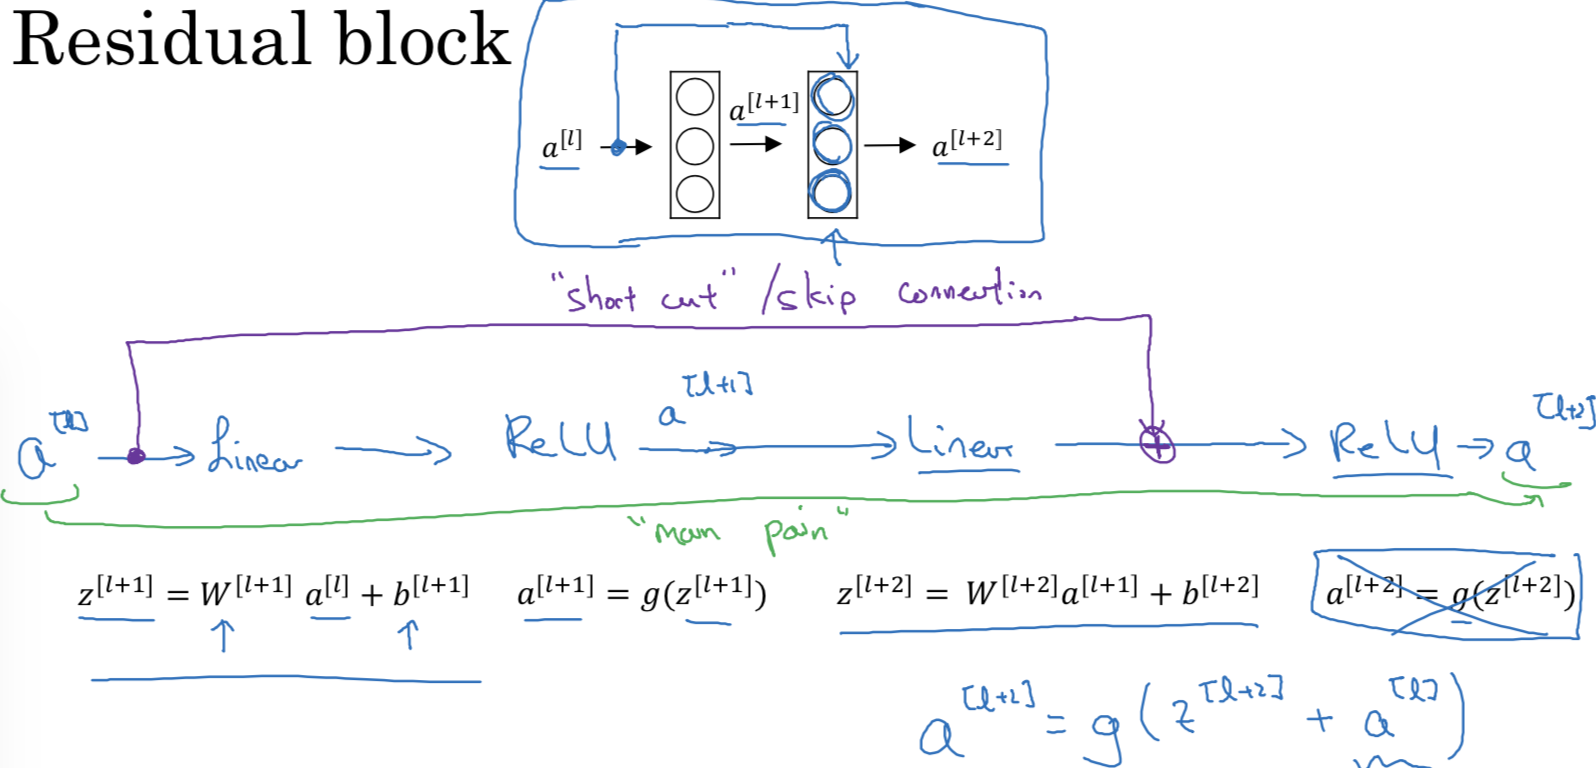 Residual block
a^[l] a^[l+1] a^[l+2]
"short cut" / skip connection
a^[l] → Linear → ReLU → a^[l+1] → Linear → ⊕ → ReLU → a^[l+2]
"main path"
z^[l+1] = W^[l+1] a^[l] + b^[l+1] a^[l+1] = g(z^[l+1]) z^[l+2] = W^[l+2]a^[l+1] + b^[l+2] a^[l+2] = g(z^[l+2])
a^[l+2] = g(z^[l+2] + a^[l])